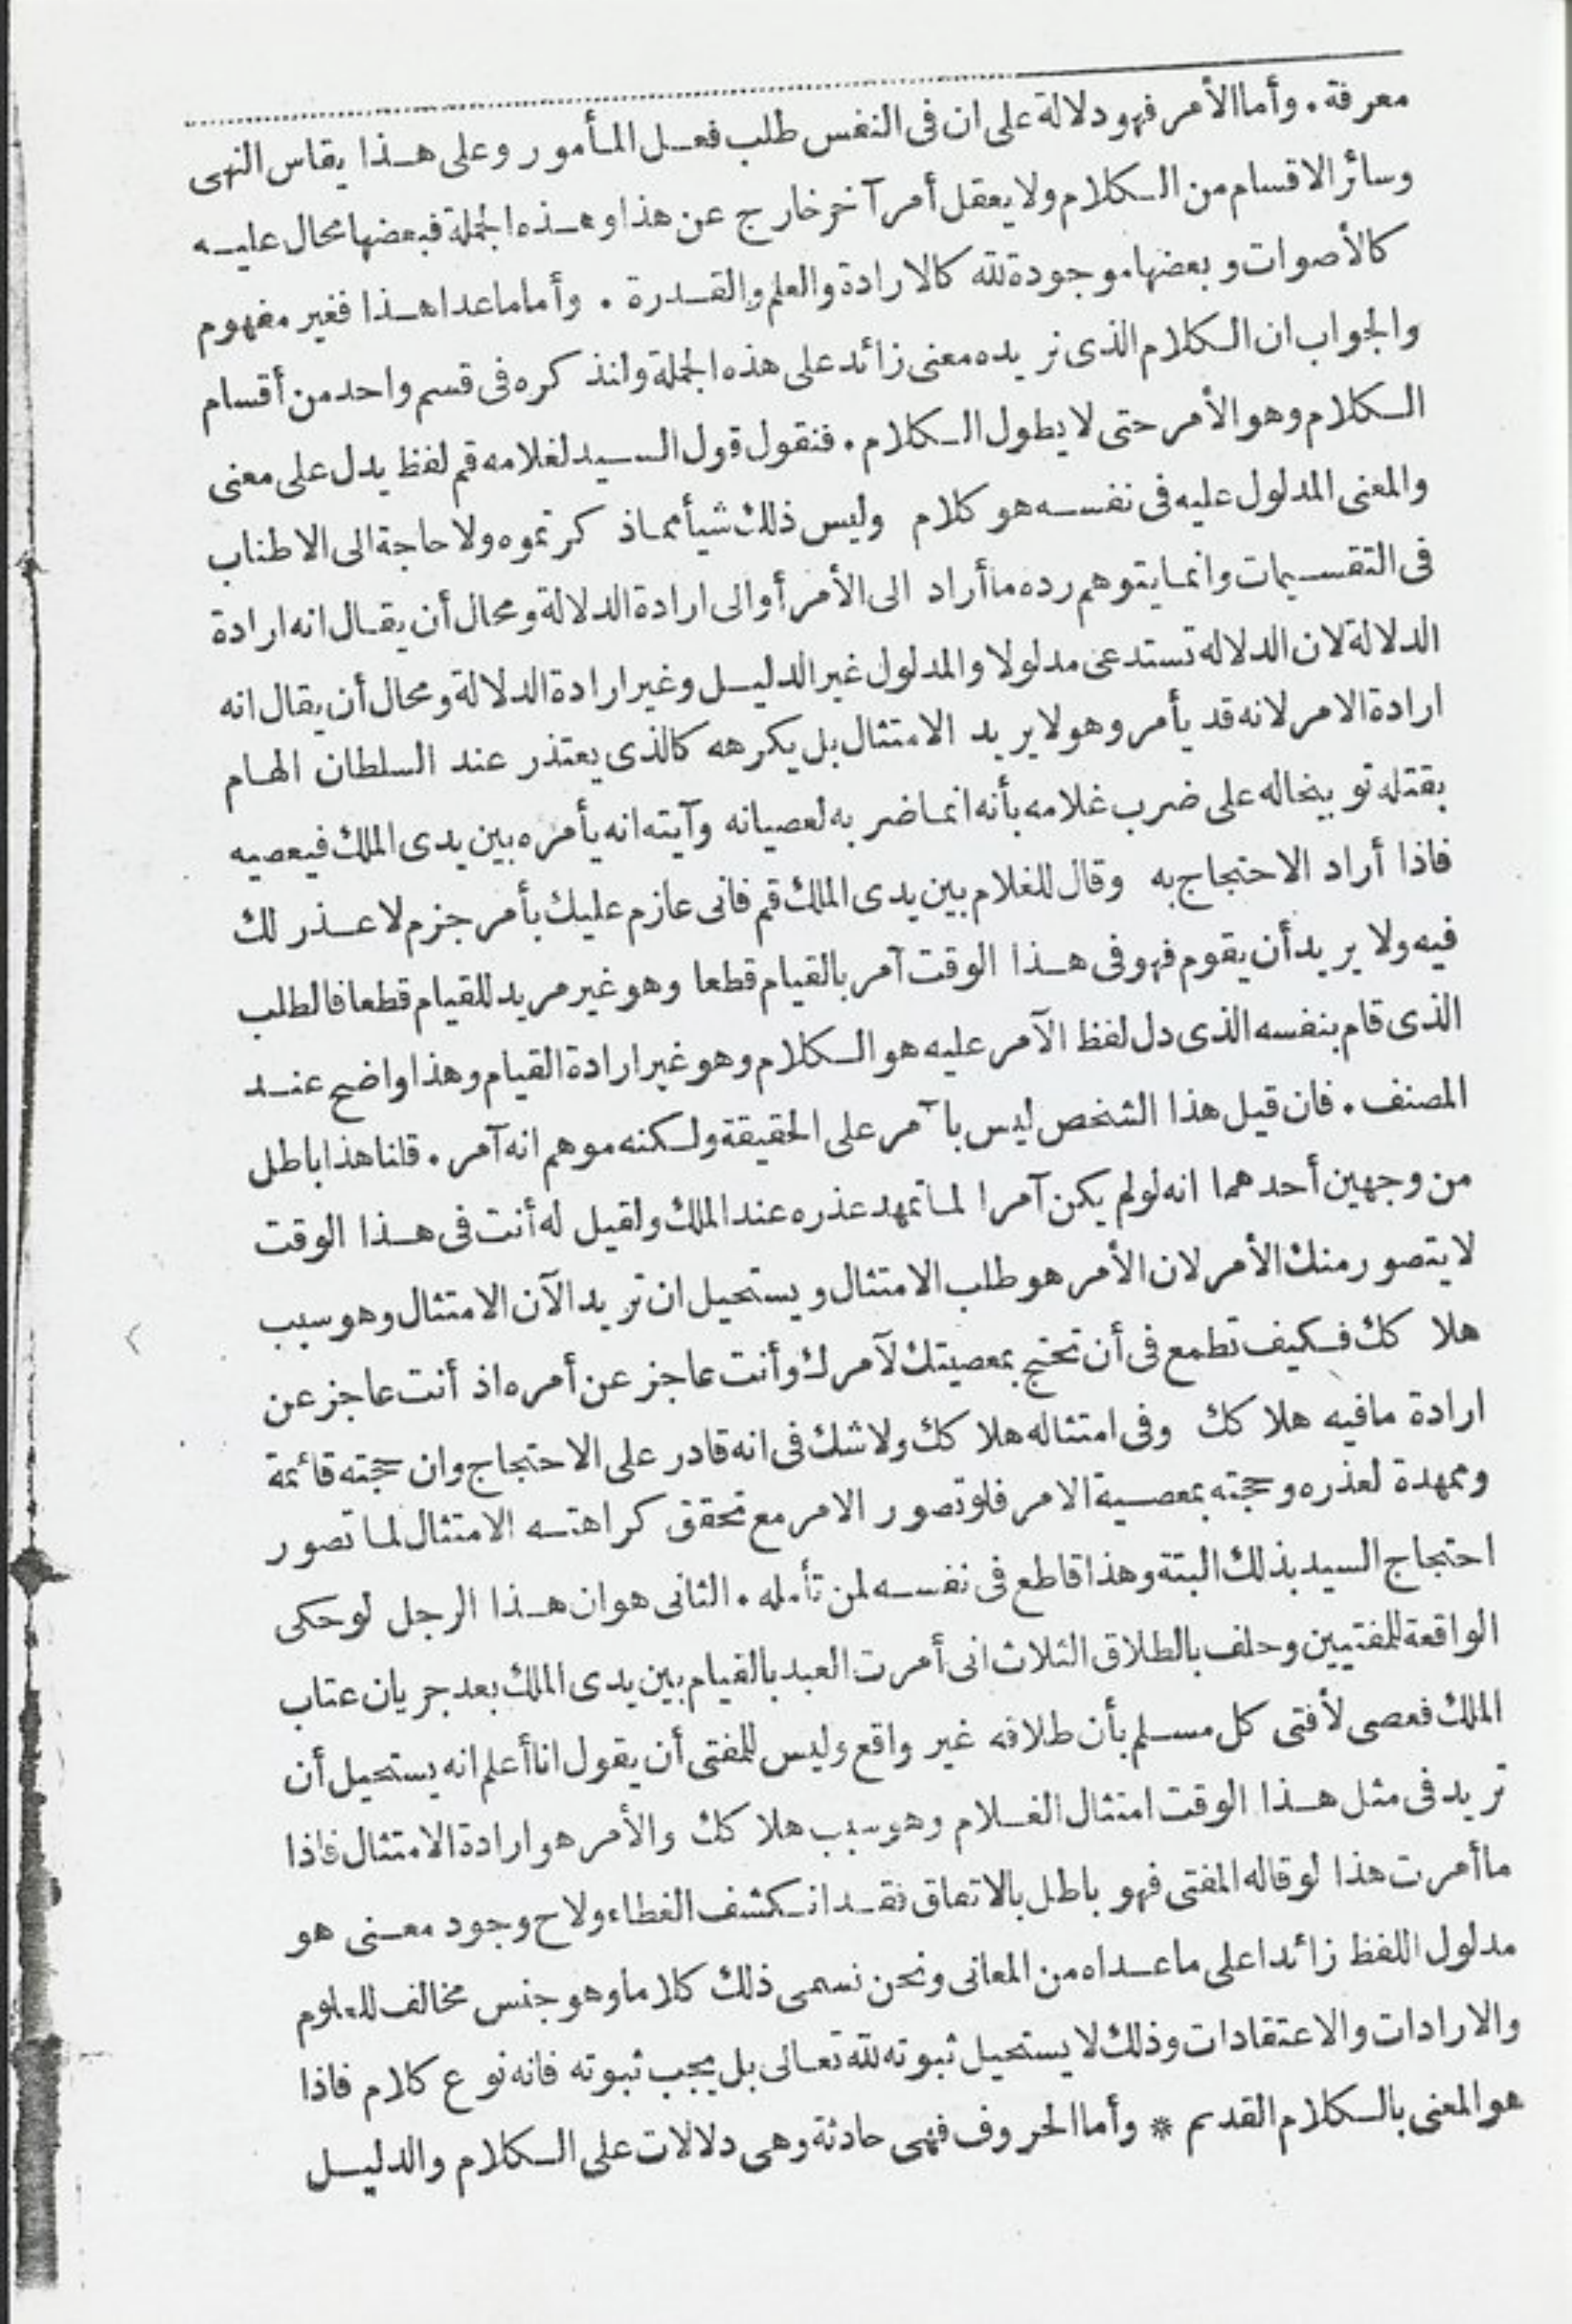 معرفة . وأما الأمر فهو دلالة على ان فى النفس طلب فعل المأمور وعلى هذا يقاس النهى
وسائر الاقسام من الكلام ولا يعقل أمر آخر خارج عن هذا وهذه الجملة فبعضها محال عليه
كالأصوات وبعضها موجودة لله كالارادة والعلم والقدرة . وأما ما عدا هذا فغير مفهوم
والجواب ان الكلام الذى نريده معنى زائد على هذه الجملة ولنذكره فى قسم واحد من أقسام
الكلام وهو الأمر حتى لا يطول الكلام . فنقول قول السيد لغلامه قم لفظ يدل على معنى
والمعنى المدلول عليه فى نفسه هو كلام وليس ذلك شيأ مما ذكرتموه ولا حاجة الى الاطناب
فى التقسيمات وانما يتوهم رده ما أراد الى الأمر أو الى ارادة الدلالة ومحال أن يقال انه ارادة
الدلالة لان الدلالة تستدعى مدلولا والمدلول غير الدليل وغير ارادة الدلالة ومحال أن يقال انه
ارادة الامر لانه قد يأمر وهو لا يريد الامتثال بل يكرهه كالذى يعتذر عند السلطان الهام
بقتله توبيخا له على ضرب غلامه بأنه انما ضربه لعصيانه وآيته انه يأمره بين يدى الملك فيعصيه
فاذا أراد الاحتجاج به وقال للغلام بين يدى الملك قم فانى عازم عليك بأمر جزم لا عذر لك
فيه ولا يريد أن يقوم فهو فى هذا الوقت آمر بالقيام قطعا وهو غير مريد للقيام قطعا فالطلب
الذى قام بنفسه الذى دل لفظ الآمر عليه هو الكلام وهو غير ارادة القيام وهذا واضح عند
المصنف . فان قيل هذا الشخص ليس بآمر على الحقيقة ولكنه موهم انه آمر . قلنا هذا باطل
من وجهين أحدهما انه لو لم يكن آمرا لما تمهد عذره عند الملك ولقيل له أنت فى هذا الوقت
لا يتصور منك الأمر لان الأمر هو طلب الامتثال ويستحيل ان تريد الآن الامتثال وهو سبب
هلاكك فكيف تطمع فى أن تحتج بمعصيتك لآمرك وأنت عاجز عن أمره اذ أنت عاجز عن
ارادة ما فيه هلاكك وفى امتثاله هلاكك ولا شك فى انه قادر على الاحتجاج وان حجته قائمة
وممهدة لعذره وحجته بمعصية الامر فلو تصور الامر مع تحقق كراهته الامتثال لما تصور
احتجاج السيد بذلك البتة وهذا قاطع فى نفسه لمن تأمله . الثانى هو ان هذا الرجل لو حكى
الواقعة للمفتيين وحلف بالطلاق الثلاث انى أمرت العبد بالقيام بين يدى الملك بعد جريان عتاب
الملك فعصى لأفتى كل مسلم بأن طلاقه غير واقع وليس للمفتى أن يقول انا أعلم انه يستحيل أن
تريد فى مثل هذا الوقت امتثال الغلام وهو سبب هلاكك والأمر هو ارادة الامتثال فاذا
ما أمرت هذا لو قاله المفتى فهو باطل بالاتفاق فقد انكشف الغطاء ولاح وجود معنى هو
مدلول اللفظ زائدا على ما عداه من المعانى ونحن نسمى ذلك كلاما وهو جنس مخالف للعلوم
والارادات والاعتقادات وذلك لا يستحيل ثبوته لله تعالى بل يجب ثبوته فانه نوع كلام فاذا
هو المعنى بالكلام القديم * وأما الحروف فهى حادثة وهى دلالات على الكلام والدليل